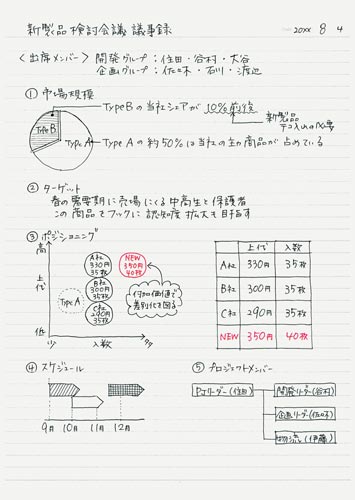 新製品検討会議 議事録
20XX 8 4
〈出席メンバー〉 開発グループ：住田・谷村・大谷
企画グループ：佐々木・石川・渡辺
① 市場規模
Type Bの当社シェアが10%前後
新製品
テコ入れの必要
Type B
Type A
Type Aの約50%は当社の主力商品が占めている
② ターゲット
春の需要期に売場にくる中高生と保護者
この商品をフックに認知度拡大も目指す
③ ポジショニング
高
上代
低
少
入数
多
A社
330円
35枚
NEW
350円
40枚
B社
300円
35枚
Type A
C社
290円
35枚
付加価値で
差別化を図る
上代 入数
A社 330円 35枚
B社 300円 35枚
C社 290円 35枚
NEW 350円 40枚
④ スケジュール
9月 10月 11月 12月
⑤ プロジェクトメンバー
PJリーダー(住田)
開発リーダー(谷村)
企画リーダー(佐々木)
物流(伊藤)